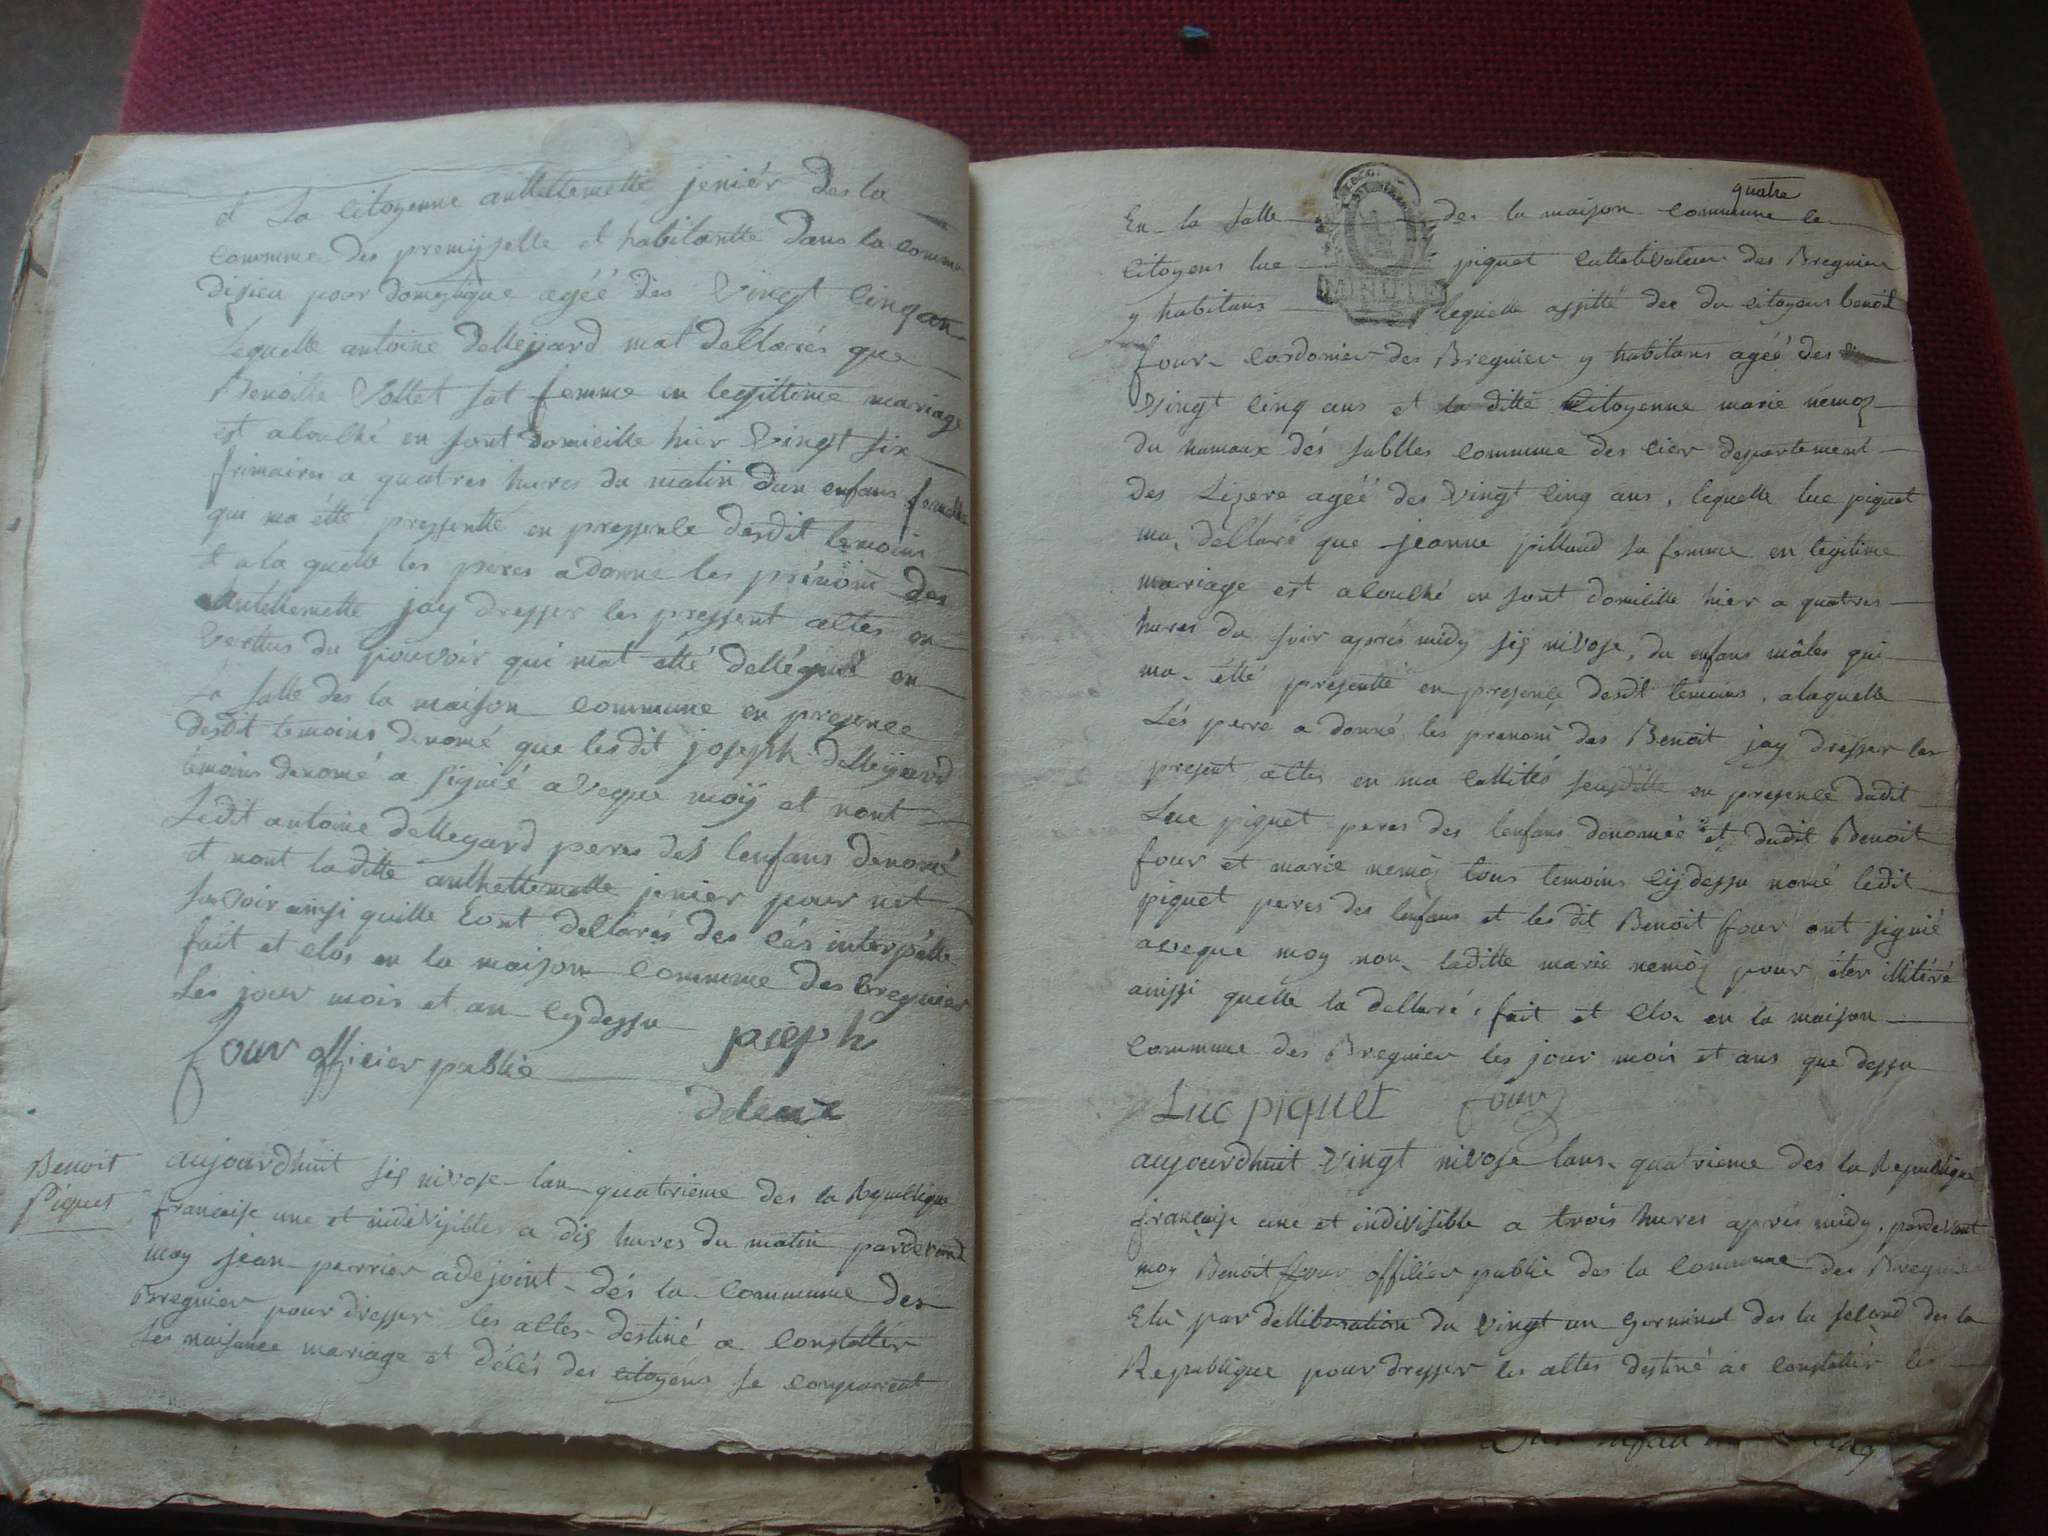 et La Citoyenne anthelemette jeniér des la
commune des premijselle et habitantte dans la comm
dizieu pour domestique agéé des Vingt Cinq an
Lequelle antoine dellegard mat dellarés que
Benoitte Vollet sat femme en legittime mariage
est alouché en sont domicille hier Vingt six
frimaires a quatres hures du matin dun enfans femelle
qui ma étté pressentté en pressenle desdit temoins
et ala quelle les peres adonne les prénoim des
anthellemette jay dresser les pressent altes en
Verttus du pouvoir qui mat etté dellégué en
La salle des la maison Commune en presence
desdit temoins denomé que lesdit joseph dellegard
temoins denomé a signié aveque moÿ et nont
Ledit antoine dellegard peres des lenfans denomé
et nont laditte anthellemette jenier pour net
savoir ainsi quille lont dellarés des lés interpelle
fait et clos en la maison Commune des Bregnier
Les jour mois et an cydessu
four officier public
joseph
delene
Benoit
Piquet
aujourdhuit sig nivose lan quatrieme des la Republique
francaise une et indéVisibles a dis hures du matin pardevand
moy jean perrier adejoint dés la Commune des
Bregnier pour dresser les altes destiné a Constattér
Les naisance mariage et délés des citoyens se comparent
quatre
En la salle des la maison commune le
Citoyens luc piquet Culletivateur des Bregnier
y habitans lequelle assitté des du citoyens benoit
four Cordonier des Bregnier y habitans agéé des
Vingt Cinq ans et la ditte Citoyenne marie nemoz
du humaux dés sablles Commune des cier departement
des Lizere agéé des Vingt Cinq ans, lequelle luc piquet
ma dellaré que jeanne pilloud sa femme en legitime
mariage est alouché en sont domicille hier a quatres
hures du soir aprés midy sig nivose, du enfans mâles qui
ma étté presentté en presenle desdit temoins, alaquelle
Lés pere a donné les prenom des Benoit jay dresser les
present altes en ma callités seusditte en presenle dudit
Luc piquet peres des lenfans denomée et dudit Benoit
four et marie nemoz tous temoins Cijdessu nomé ledit
piquet peres des lenfans et les dit Benoit four ont signié
aveque moy non laditte marie nemoz pour éter illitéré
ainssi quelle la dellaré, fait et clos en la maison
Commune des Bregnier les jour mois et ans que dessu
Luc piquet four
aujourdhuit Vingt nivose lans quatrieme des la Republique
françaisse une et indivisible a trois hures aprés midy, pardevant
moy Benoit four offilier public des la Commune des Bregnier
Elu par delliberation du Vingt un Germinal des la selond des la
Republique pour dresser les altes destiné ac Constattér les